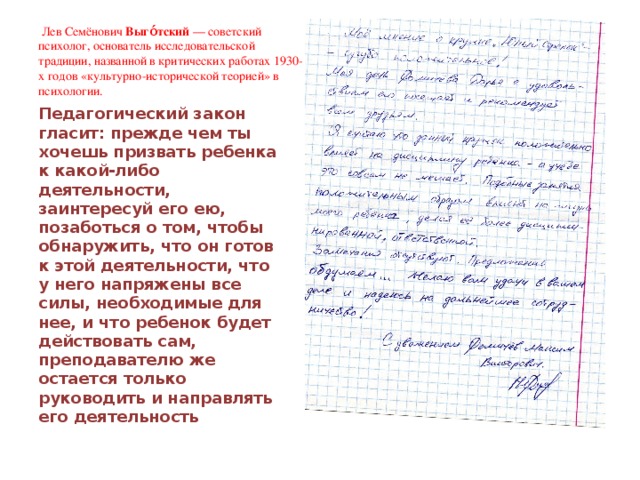 Лев Семёнович Выго́тский — советский
психолог, основатель исследовательской
традиции, названной в критических работах 1930-
х годов «культурно-исторической теорией» в
психологии.
Педагогический закон
гласит: прежде чем ты
хочешь призвать ребенка
к какой-либо
деятельности,
заинтересуй его ею,
позаботься о том, чтобы
обнаружить, что он готов
к этой деятельности, что
у него напряжены все
силы, необходимые для
нее, и что ребенок будет
действовать сам,
преподавателю же
остается только
руководить и направлять
его деятельность
Моё мнение о кружке "Юный
- сугубо положительное!
Моя дочь Дарья с удоволь-
ствием его посещает и рекомендует
всем друзьям.
Я считаю что данный кружок положительно
влияет на дисциплину ребенка - а учебе
это совсем не мешает. Подобные занятия
положительным образом влияют на жизнь
моего ребенка, делая её более дисципли-
нированной, ответственной.
Замечания отсутствуют. Предложения
обдумаем... Желаю вам удачи в вашем
деле и надеюсь на дальнейшее сотруд-
ничество!
С уважением Максим
Викторович.